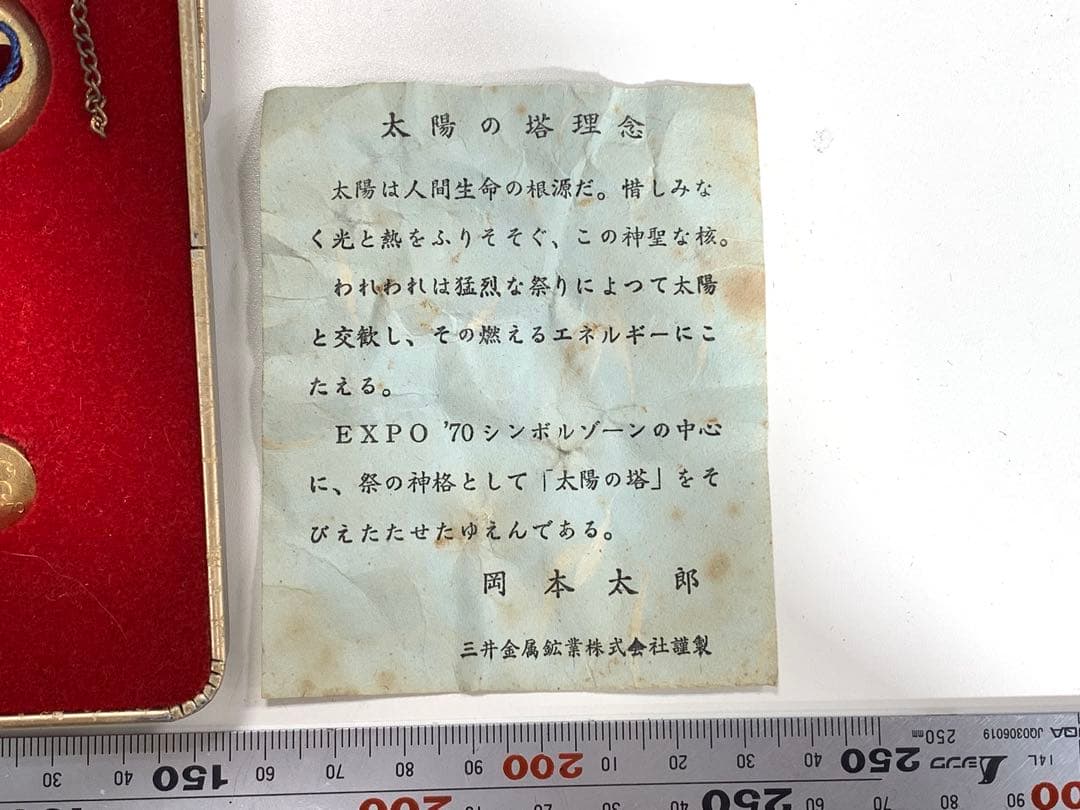 太陽の塔理念
太陽は人間生命の根源だ。惜しみな
く光と熱をふりそそぐ、この神聖な核。
われわれは猛烈な祭りによつて太陽
と交歓し、その燃えるエネルギーにこ
たえる。
EXPO '70シンボルゾーンの中心
に、祭の神格として「太陽の塔」をそ
びえたたせたゆえんである。
岡本太郎
三井金属鉱業株式会社謹製
30 40 150 60 70 80 90 200 10 20 30 40 250 シンワ 14L
250mm JQ0306019